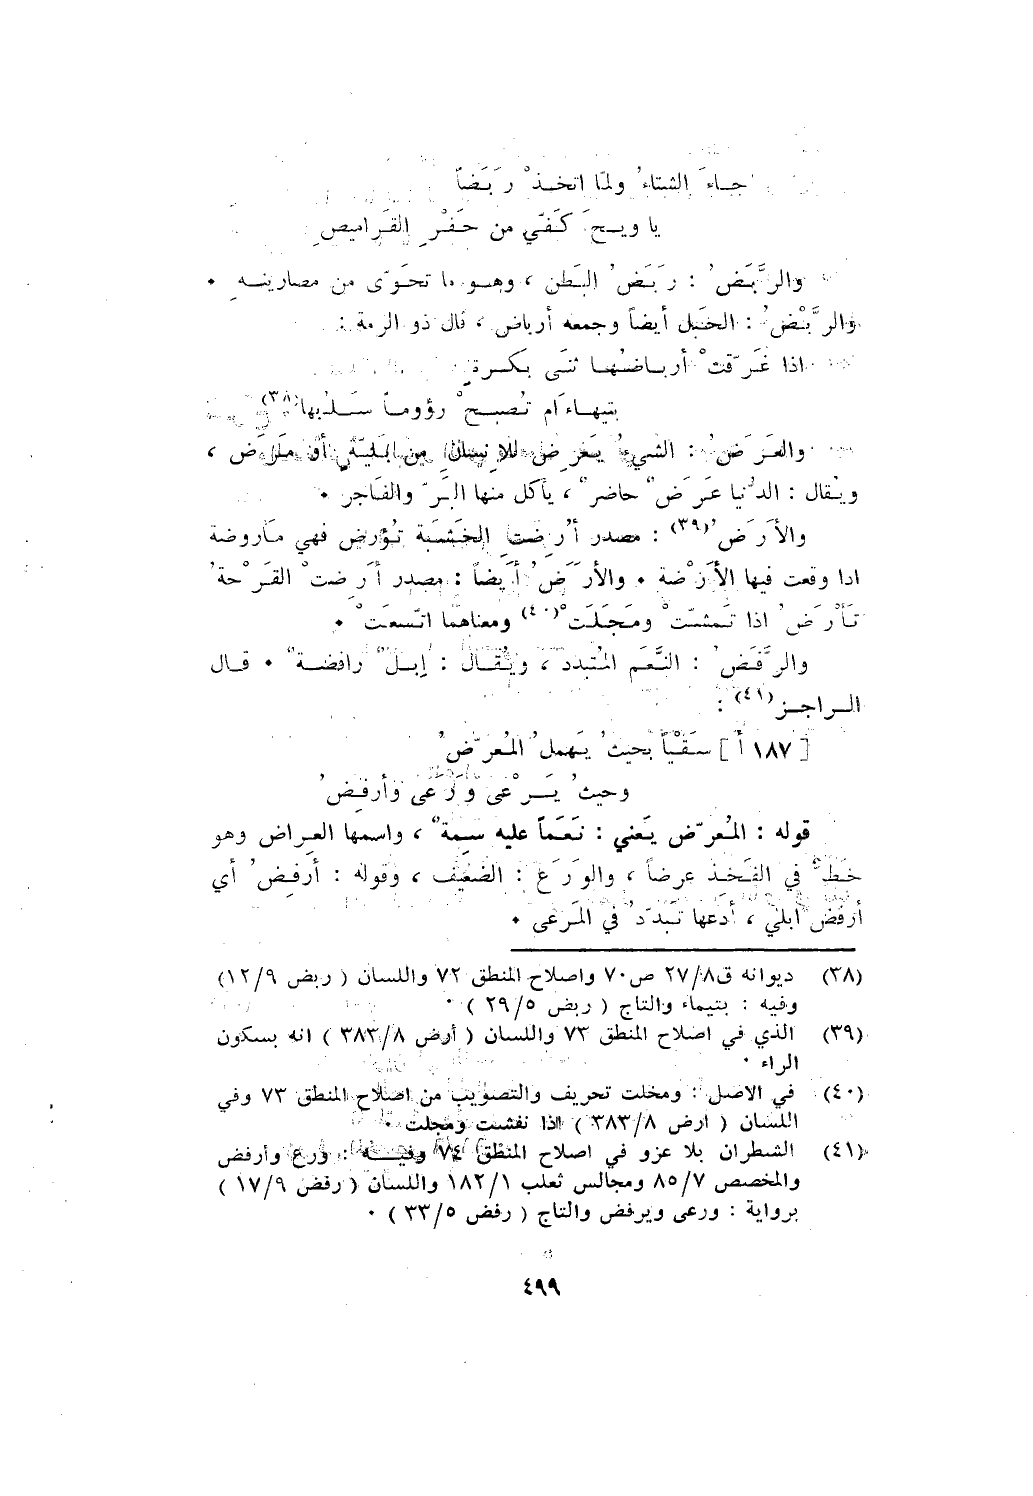 جاءَ الشتاءُ ولمّا اتخذْ رَبَضاً
يا ويحَ كَفّي من حَفْرِ القَراميصِ
والرَّبَضُ : رَبَضُ البَطن ، وهو ما تحَوّى من مصارينه ٠
والرَّبْضُ : الحَبل أيضاً وجمعه أرباض ، قال ذو الرمة :
اذا غَرَّقتْ أرباضُها ثنَى بَكرةٍ
بتيهاءَ لم تُصبحْ رؤوماً سَلُوبها(٣٨)
والعَرَضُ : الشيءُ يَعْرِض للإنسان من بَليّةٍ أو مَرَض ،
ويُقال : الدُنيا عَرَضٌ حاضرٌ ، يأكل منها البَرّ والفَاجر ٠
والأَرَضُ(٣٩) : مصدر أُرِضَتِ الخَشَبَة تُؤرض فهي مَأروضة
اذا وقعت فيها الأَرَضَة ٠ والأَرَضُ أيضاً : مصدر أَرِضَتْ القَرْحةُ
تَأْرَضُ اذا تَمشّتْ ومَجَلَتْ(٤٠) ومعناهما اتّسعَتْ ٠
والرَّفَضُ : النَّعَم المُتبدد ، ويُقَال : إبلٌ رافضةٌ ٠ قال
الراجز(٤١) :
[ ١٨٧ أ ] سَقْياً بحيثُ يَهملُ المُعرّضُ
وحيثُ يَرْعى وَرَعى وأرفضُ
قوله : المُعرّض يَعني : نَعَماً عليه سِمةٌ ، واسمها العِراض وهو
خَطٌ في الفَخذ عرضاً ، والوَرَعُ : الضَعيف ، وقوله : أرفضُ أي
أرفُض ابلي ، أدَعها تَبدّدُ في المَرعى ٠
(٣٨) ديوانه ق٢٧/٨ ص٧٠ واصلاح المنطق ٧٢ واللسان ( ربض ١٢/٩)
وفيه : بتيماء والتاج ( ربض ٢٩/٥ ) ٠
(٣٩) الذي في اصلاح المنطق ٧٣ واللسان ( أرض ٣٨٣/٨ ) انه بسكون
الراء ٠
(٤٠) في الاصل : ومخلت تحريف والتصويب من اصلاح المنطق ٧٣ وفي
اللسان ( ارض ٣٨٣/٨ ) اذا نفشت ومجلت ٠
(٤١) الشطران بلا عزو في اصلاح المنطق ٧٤ وفيه : ورع وأرفض
والمخصص ٨٥/٧ ومجالس ثعلب ١٨٢/١ واللسان ( رفض ١٧/٩ )
برواية : ورعى ويرفض والتاج ( رفض ٣٣/٥ ) ٠
٤٩٩